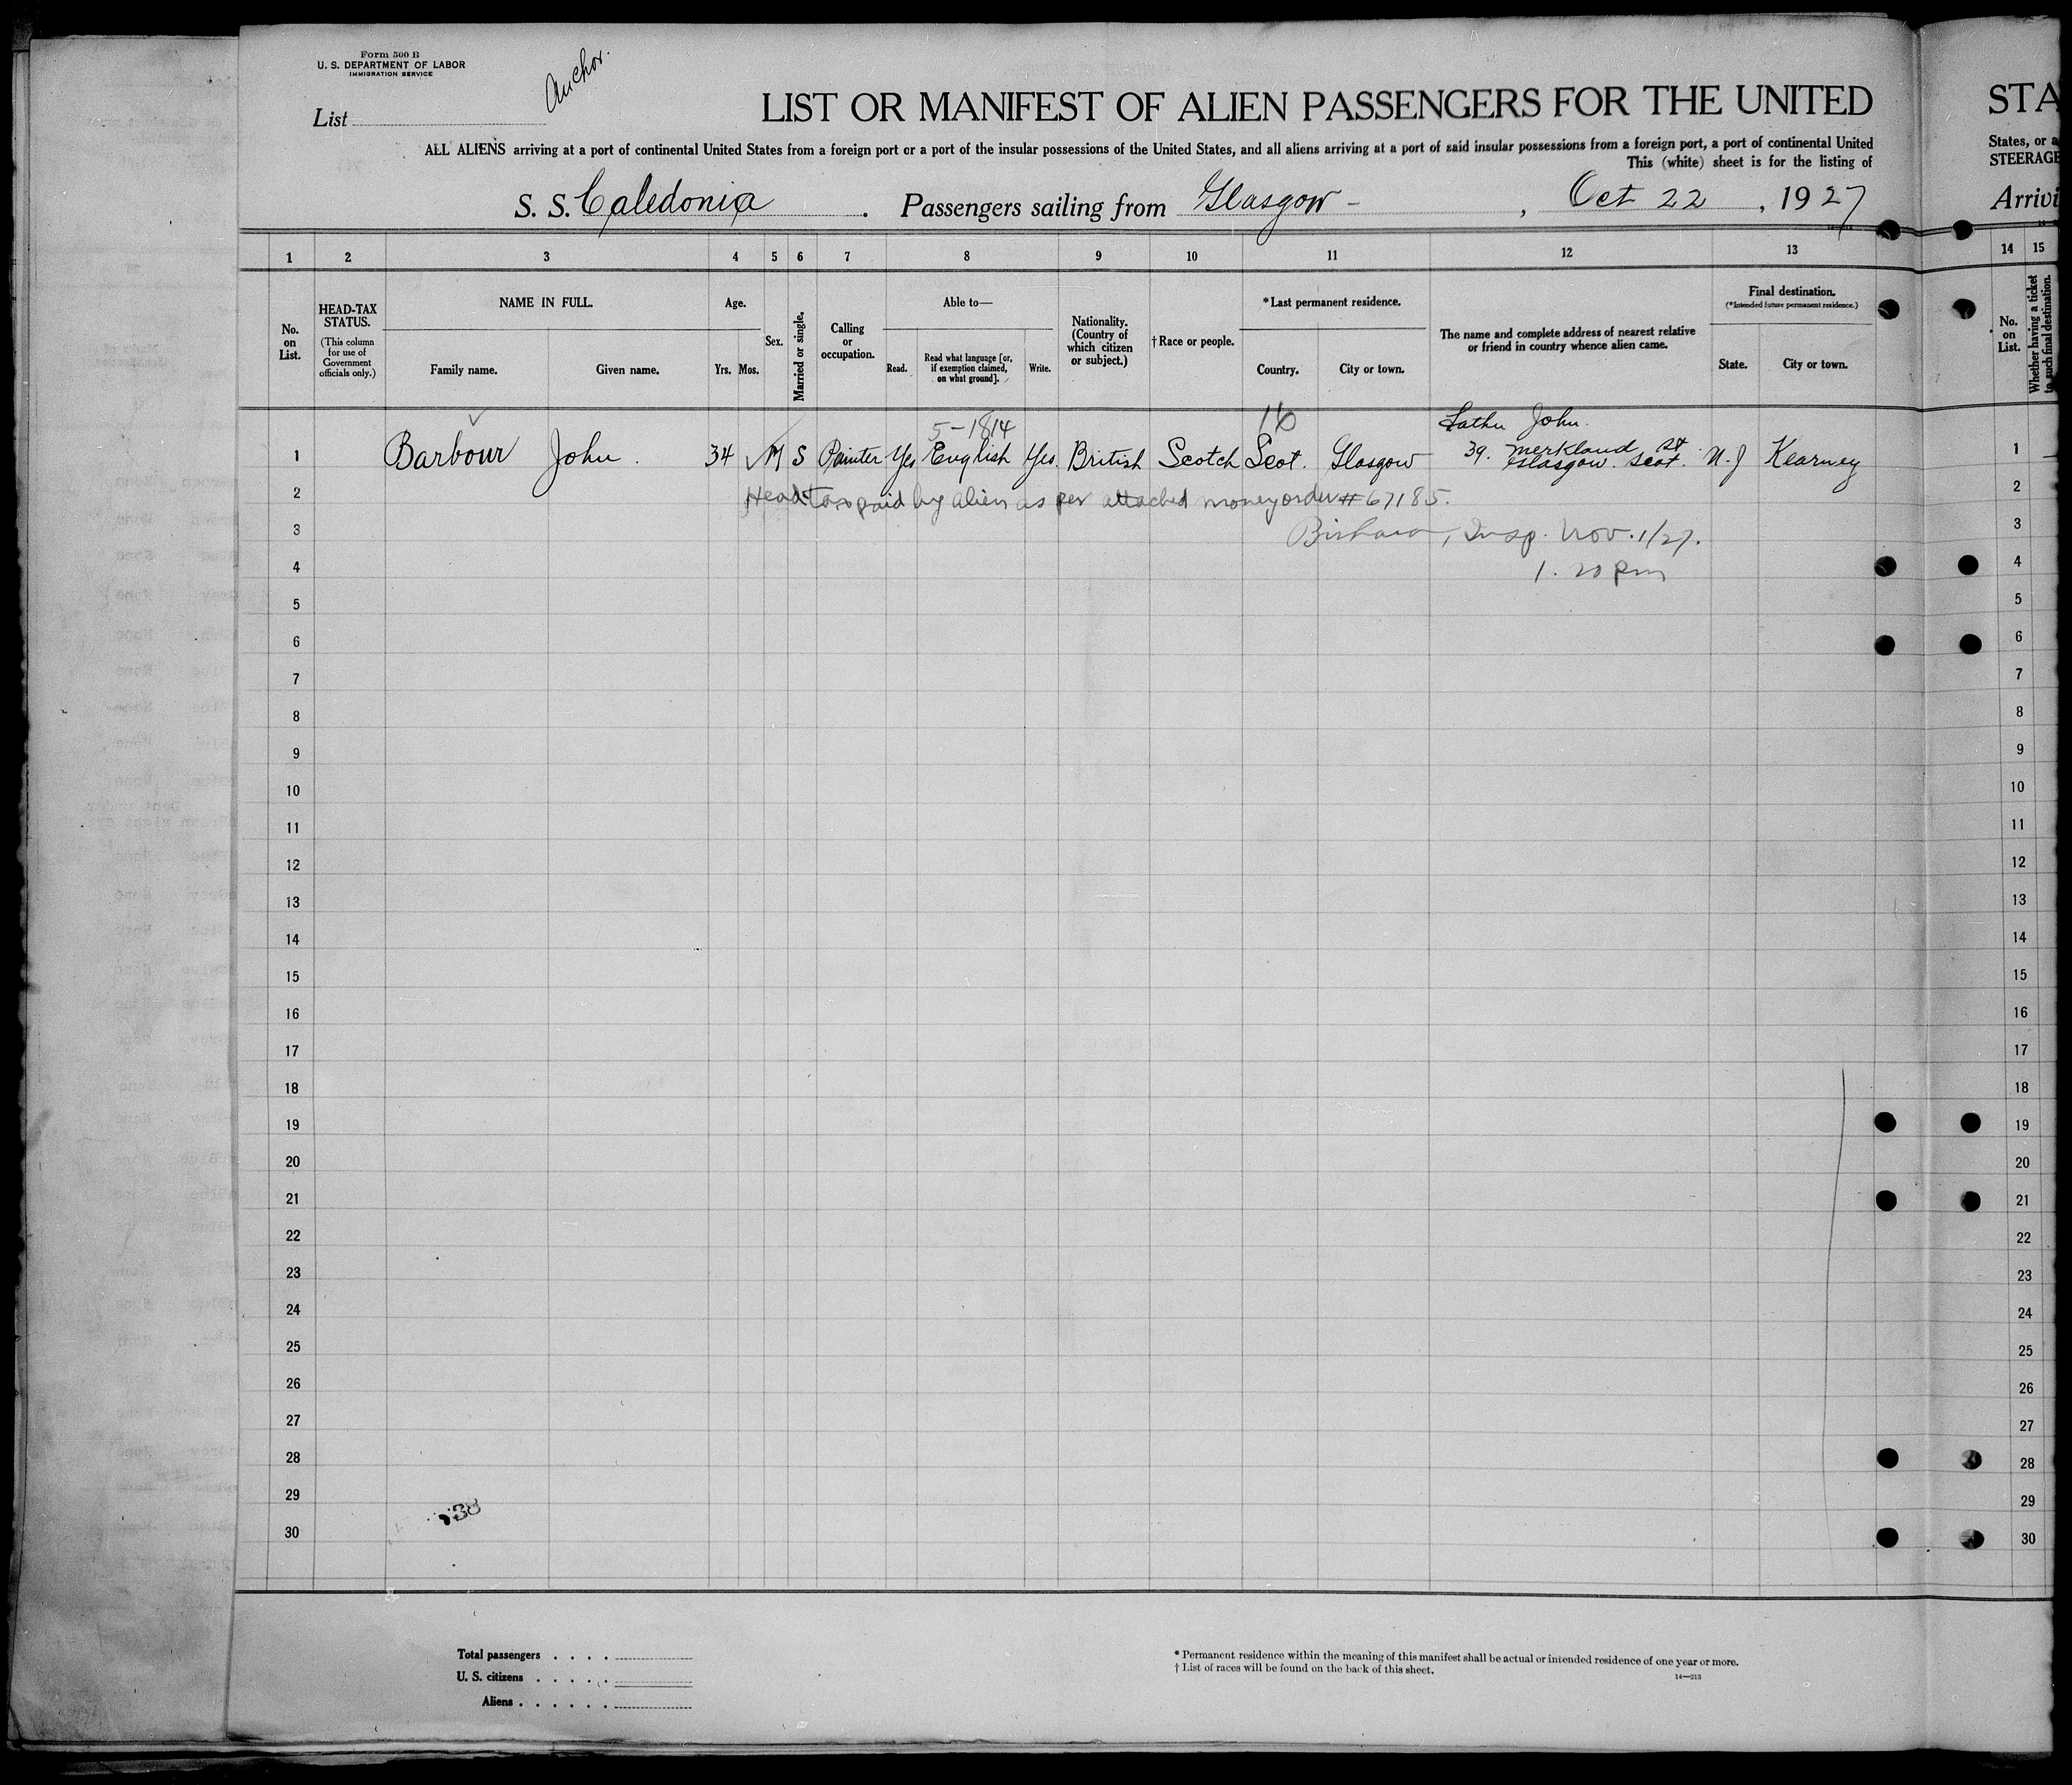 Form 500 B
U. S. DEPARTMENT OF LABOR
IMMIGRATION SERVICE
Anchor.
List
LIST OR MANIFEST OF ALIEN PASSENGERS FOR THE UNITED
ALL ALIENS arriving at a port of continental United States from a foreign port or a port of the insular possessions of the United States, and all aliens arriving at a port of said insular possessions from a foreign port, a port of continental United
This (white) sheet is for the listing of
S. S. Caledonia . Passengers sailing from Glasgow - , Oct 22 , 1927
STA
States, or a
STEERAGE
Arrivi
1 2 3 4 5 6 7 8 9 10 11 12 13 14 15
No. on List.
HEAD-TAX STATUS.
(This column for use of Government officials only.)
NAME IN FULL.
Family name. Given name.
Age.
Yrs. Mos.
Sex.
Married or single.
Calling or occupation.
Able to—
Read. Read what language [or, if exemption claimed, on what ground]. Write.
Nationality. (Country of which citizen or subject.)
† Race or people.
*Last permanent residence.
Country. City or town.
The name and complete address of nearest relative or friend in country whence alien came.
Final destination.
(*Intended future permanent residence.)
State. City or town.
No. on List.
Whether having a ticket to such final destination.
5-1814 16 John.
1 Barbour John. 34 M S Painter Yes English Yes. British Scotch Scot. Glasgow 39. Merkland St Glasgow. Scot. N. J Kearney 1
2 Head tax paid by alien as per attached money order # 67185. 2
3 Insp. Nov. 1/27. 3
4 1. 20 pm 4
5 5
6 6
7 7
8 8
9 9
10 10
11 11
12 12
13 13
14 14
15 15
16 16
17 17
18 18
19 19
20 20
21 21
22 22
23 23
24 24
25 25
26 26
27 27
28 28
29 29
30 30
Total passengers . . . .
U. S. citizens . . . . .
Aliens . . . . . .
* Permanent residence within the meaning of this manifest shall be actual or intended residence of one year or more.
† List of races will be found on the back of this sheet.
14—213